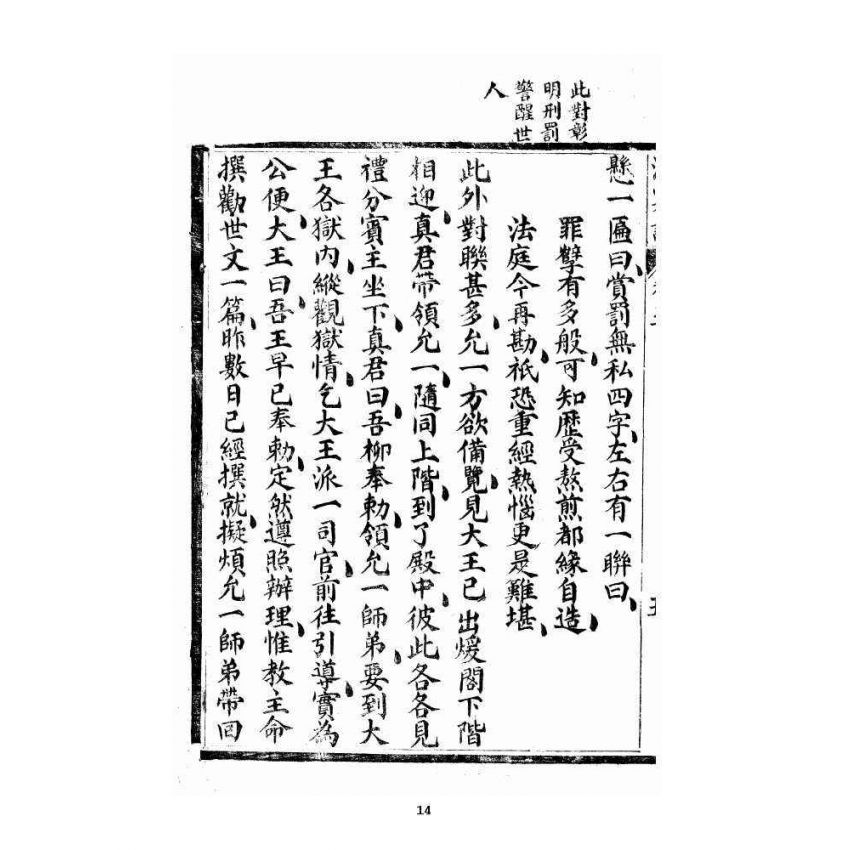 此對彰
明刑罰
警醒世
人
懸一匾曰、賞罰無私四字、左右有一聯曰、
罪孽有多般、可知歷受熬煎都緣自造、
法庭今再勘、祇恐重經熱惱更是難堪、
此外對聯甚多、允一方欲備覽、見大王已出煖閣下階
相迎、真君帶領允一、隨同上階、到了殿中、彼此各各見
禮、分賓主坐下、真君曰、吾柳奉勅、領允一師弟、要到大
王各獄內、縱觀獄情、乞大王派一司官、前往引導、實為
公便、大王曰、吾王早已奉勅、定然遵照辦理、惟教主命
撰勸世文一篇、昨數日已經撰就、擬煩允一師弟帶回
14